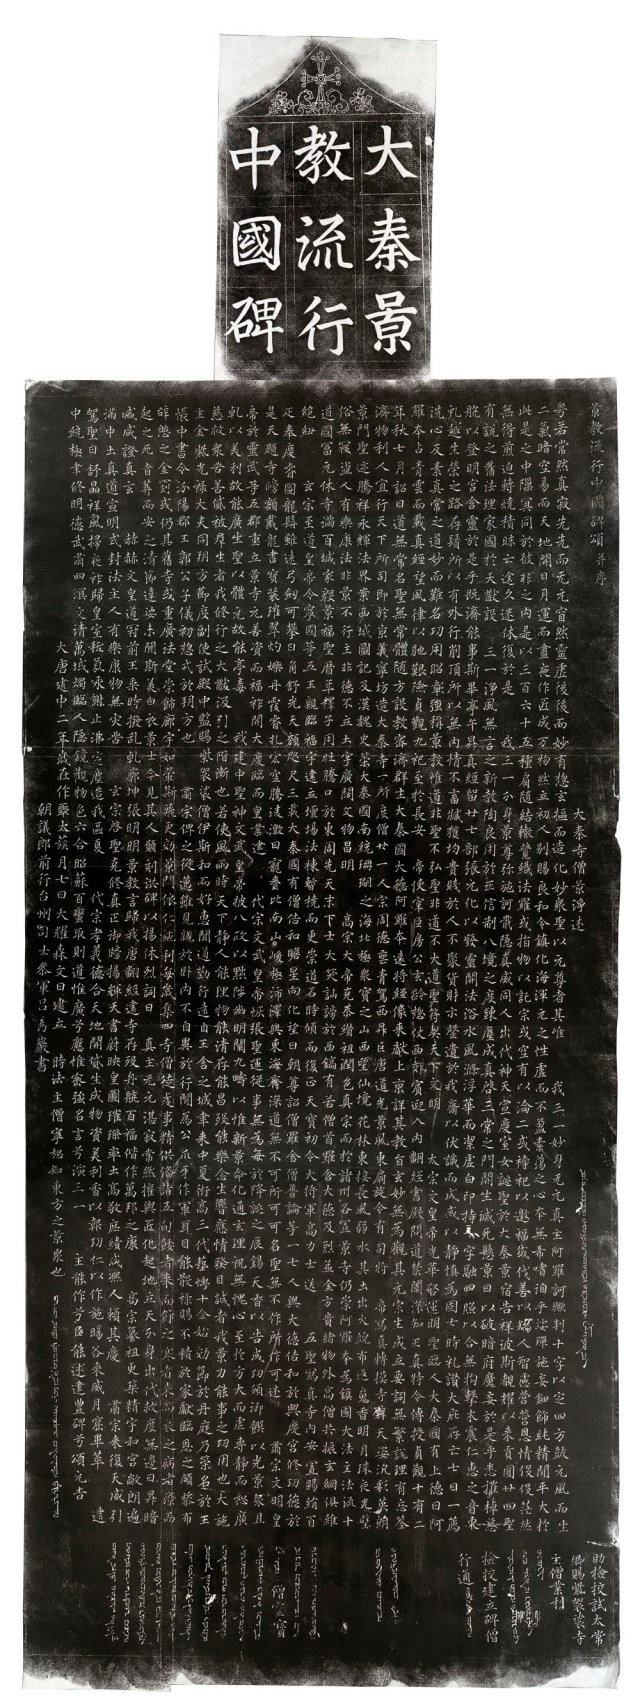 大秦景
教流行
中國碑
景教流行中國碑頌并序
大秦寺僧景淨述
粵若常然真寂先先而无元窅然靈虛後後而妙有惣玄樞而造化妙衆聖以元尊者其唯 我三一妙身无元真主阿羅訶歟判十字以定四方鼓元風而生
二氣暗空易而天地開日月運而晝夜作匠成万物然立初人別賜良和令鎮化海渾元之性虛而不盈素蕩之心本無希嗜洎乎娑殫施妄鈿飾純精閒平大於
此是之中隟冥同於彼非之內是以三百六十五種肩隨結轍競織法羅或指物以託宗或空有以淪二或禱祀以邀福或伐善以矯人智慮營營恩情役役茫然
無得煎迫轉燒積昧亡途久迷休復於是 我三一分身景尊弥施訶戢隱真威同人出代神天宣慶室女誕聖於大秦景宿告祥波斯覩耀以來貢圓廿四聖
有說之舊法理家國於大猷設 三一淨風無言之新教陶良用於正信制八境之度鍊塵成真啓三常之門開生滅死懸景日以破暗府魔妄於是乎悉摧棹慈
航以登明宮含靈於是乎既濟能事斯畢亭午昇真經留廿七部張元化以發靈關法浴水風滌浮華而潔虛白印持十字融四照以合無拘擊木震仁惠之音東
礼趣生榮之路存鬚所以有外行削頂所以無內情不畜臧獲均貴賤於人不聚貨財示罄遺於我齋以伏識而成戒以靜慎為固七時礼讚大庇存亡七日一薦
洗心反素真常之道妙而難名功用昭彰強稱景教惟道非聖不弘聖非道不大道聖符契天下文明 太宗文皇帝光華啓運明聖臨人大秦國有上德曰阿
羅本占青雲而載真經望風律以馳艱險貞觀九祀至於長安 帝使宰臣房公玄齡惣仗西郊賓迎入內翻經書殿問道禁闈深知正真特令傳授貞觀十有二
年秋七月詔曰道無常名聖無常體隨方設教密濟群生大秦國大德阿羅本遠將經像來獻上京詳其教旨玄妙無為觀其元宗生成立要詞無繁說理有忘筌
濟物利人宜行天下所司即於京義寧坊造大秦寺一所度僧廿一人宗周德喪青駕西昇巨唐道光景風東扇旋令有司將 帝寫真轉摸寺壁天姿汎彩英朗
景門聖迹騰祥永輝法界案西域圖記及漢魏史策大秦國南統珊瑚之海北極衆寶之山西望仙境花林東接長風弱水其土出火綄布返魂香明月珠夜光璧
俗無寇盜人有樂康法非景不行主非德不立土宇廣闊文物昌明 高宗大帝克恭纘祖潤色真宗而於諸州各置景寺仍崇阿羅本為鎮國大法主法流十
道國富元休寺滿百城家殷景福聖曆年釋子用壯騰口於東周先天末下士大笑訕謗於西鎬有若僧首羅含大德及烈並金方貴緒物外高僧共振玄網俱維
絕紐 玄宗至道皇帝令寧國等五王親臨福宇建立壇場法棟暫橈而更崇道石時傾而復正天寶初令大將軍高力士送 五聖寫真寺內安置賜絹百
疋奉慶睿圖龍髯雖遠弓劒可攀日角舒光天顏咫尺三載大秦國有僧佶和瞻星向化望日朝尊詔僧羅含僧普論等一七人與大德佶和於興慶宮修功德於
是天題寺牓額戴龍書寶裝璀翠灼爍丹霞睿扎宏空騰凌激日寵賚比南山峻極沛澤與東海齊深道無不可所可可名聖無不作所作可述 肅宗文明皇
帝於靈武等五郡重立景寺元善資而福祚開大慶臨而皇業建 代宗文武皇帝恢張聖運從事無為每於降誕之辰錫天香以告成功頒御饌以光景衆且
乹以美利故能廣生聖以體元故能亭毒 我建中聖神文武皇帝披八政以黜陟幽明闡九疇以惟新景命化通玄理祝無愧心至於方大而虛專靜而恕廣
慈救衆苦善貸被群生者我修行之大猷汲引之階漸也若使風雨時天下靜人能理物能清存能昌歿能樂念生響應情發目誠者我景力能事之功用也大施
主金紫光祿大夫同朔方節度副使試殿中監賜紫袈裟僧伊斯和而好惠聞道勤行遠自王舍之城聿來中夏術高三代藝博十全始効節於丹庭乃策名於王
帳中書令汾陽郡王郭公子儀初惣戎於朔方也 肅宗俾之從邁雖見親於臥內不自異於行間為公爪牙作軍耳目能散祿賜不積於家獻臨恩之頗黎布
辝憩之金罽或仍其舊寺或重廣法堂崇飾廊宇如翬斯飛更効景門依仁施利每歲集四寺僧徒虔事精供備諸五旬餧者來而飯之寒者來而衣之病者療而
起之死者葬而安之清節達娑未聞斯美白衣景士今見其人願刻洪碑以揚休烈詞曰 真主无元湛寂常然權輿匠化起地立天分身出代救度無邊日昇暗
滅咸證真玄 赫赫文皇道冠前王乘時撥亂乹廓坤張明明景教言歸我唐翻經建寺存歿舟航百福偕作萬邦之康 高宗纂祖更築精宇和宮敞朗遍
滿中土真道宣明式封法主人有樂康物無災苦 玄宗啓聖克修真正御牓揚輝天書蔚映皇圖璀璨率土高敬庶績咸熙人賴其慶 肅宗來復天威引
駕聖日舒晶祥風掃夜祚歸皇室祅氛永謝止沸定塵造我區夏 代宗孝義德合天地開貸生成物資美利香以報功仁以作施暘谷來威月窟畢萃 建
中統極聿修明德武肅四溟文清萬域燭臨人隱鏡觀物色六合昭蘇百蠻取則道惟廣兮應惟密強名言兮演三一 主能作兮臣能述建豐碑兮頌元吉
大唐建中二年歲在作噩太蔟月七日大耀森文日建立 時法主僧寧恕知東方之景衆也
朝議郎前行台州司士參軍呂秀巖書
助撿挍試太常
卿賜紫袈裟寺
主僧業利
撿挍建立碑僧
行通
僧靈寶